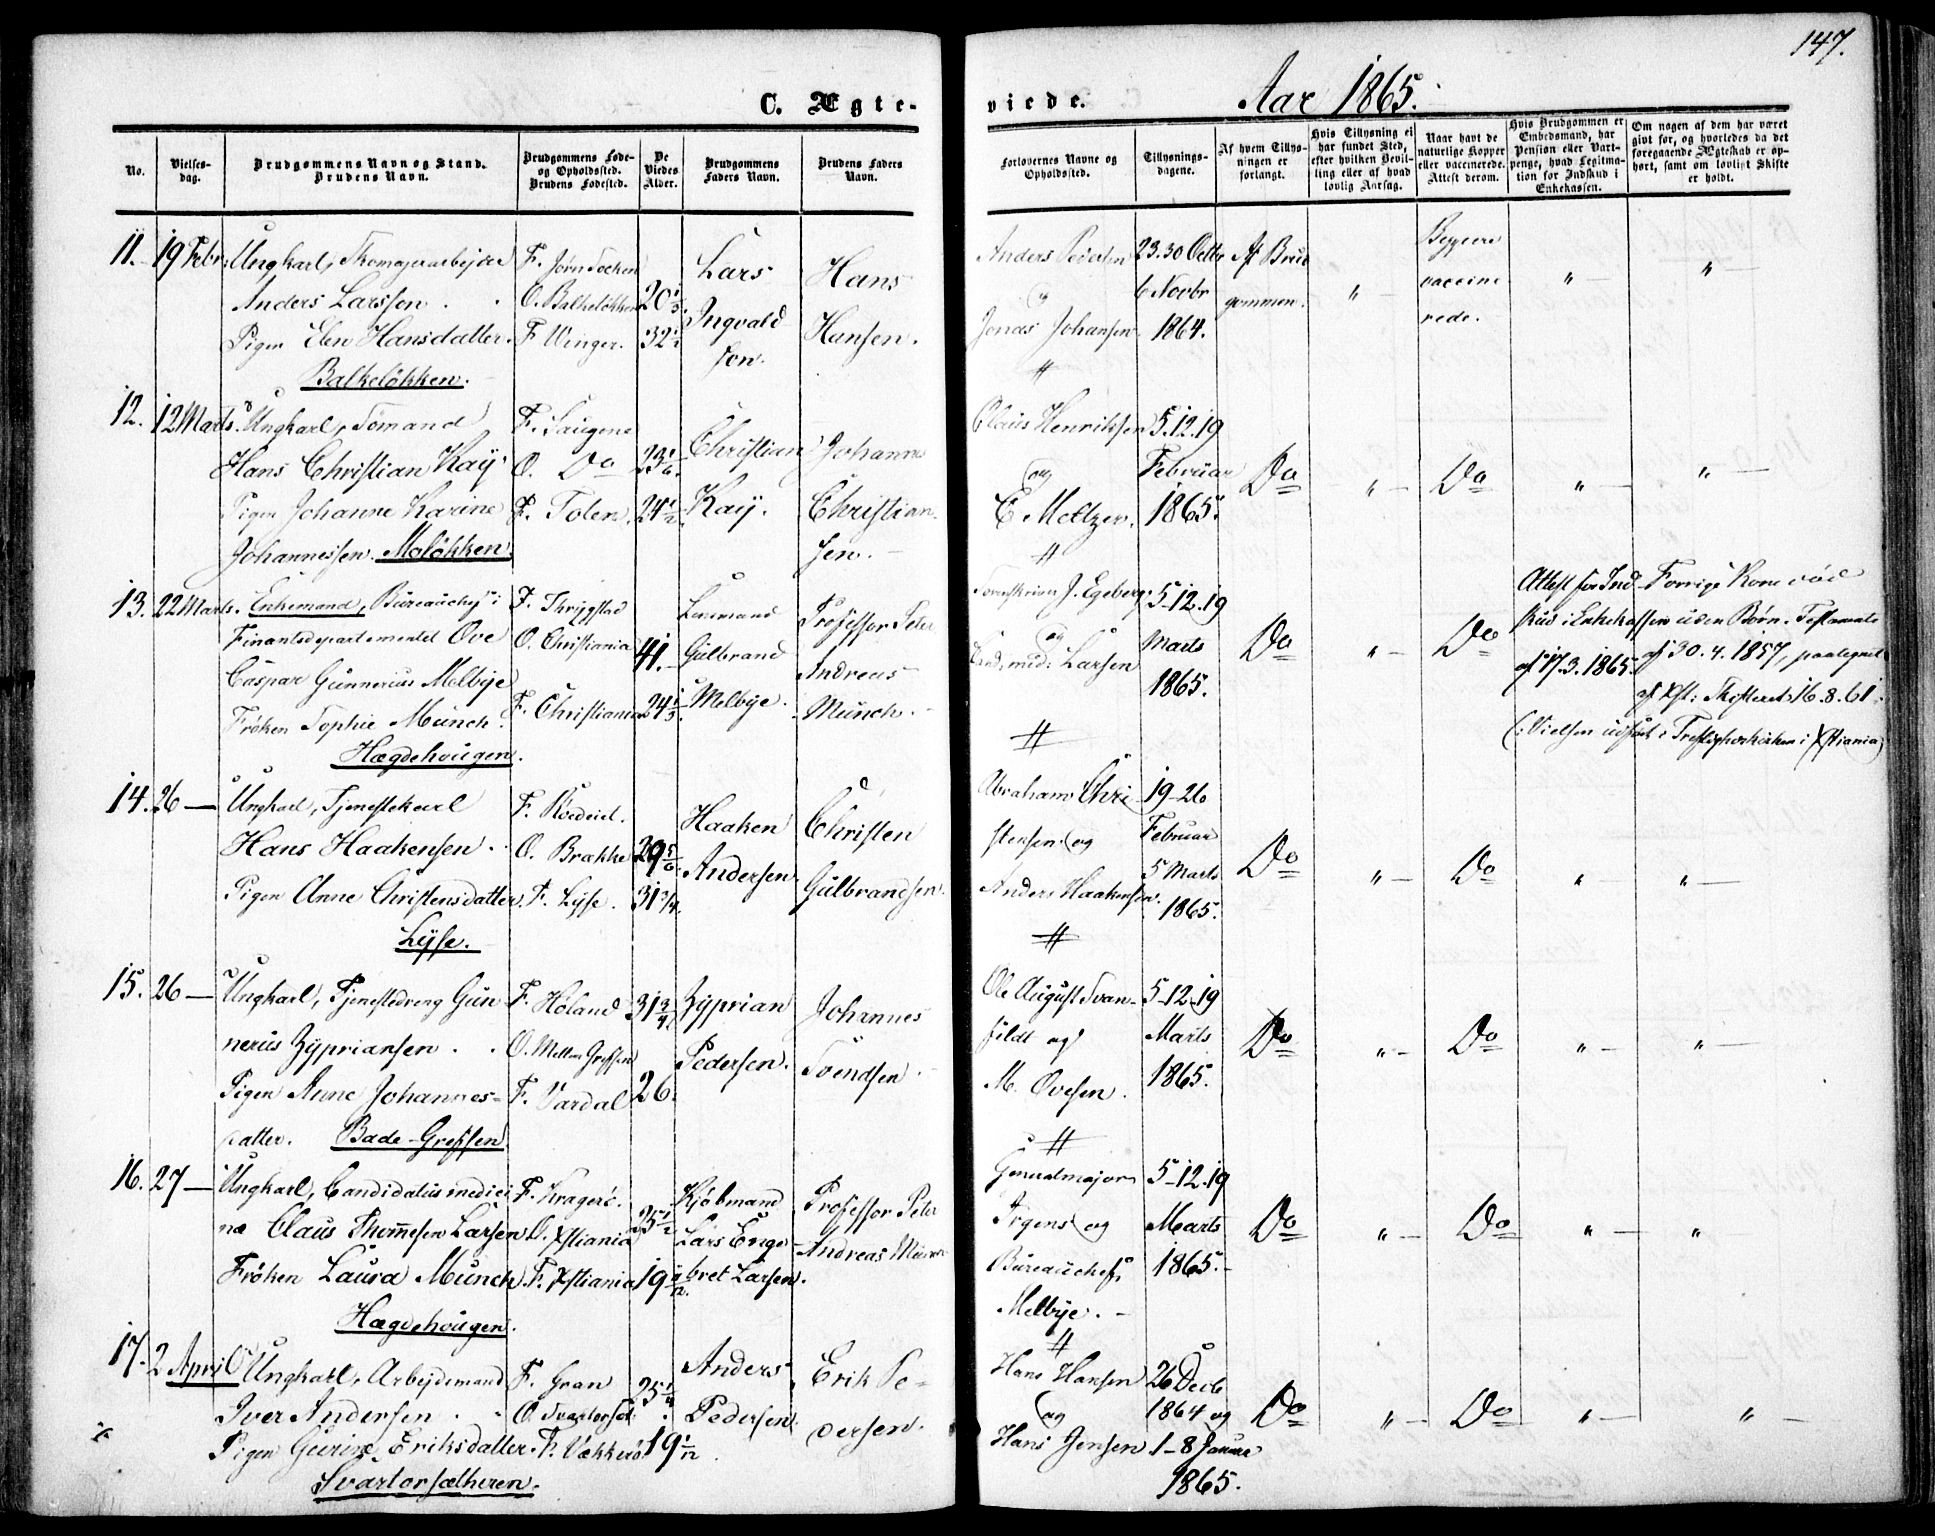 147.
C. Ægte-
viede.
Aar 1865.
No.
Vielses-
dag.
Brudgommens Navn og Stand.
Brudens Navn.
Brudgommens Føde-
og Opholdssted.
Brudens Fødested.
De
Viedes
Alder.
Brudgommens
Faders Navn.
Brudens Faders
Navn.
Forlovernes Navne og
Opholdssted.
Tillysnings-
dagene.
Af hvem Tillys-
ningen er
forlangt.
Hvis Tillysning ei
har fundet Sted,
efter hvilken Bevil-
ling eller af hvad
lovlig Aarsag.
Naar havt de
naturlige Kopper
eller vaccinerede.
Attest derom.
Hvis Brudgommen er
Embedsmand, har
Pension eller Vart-
penge, hvad Legitima-
tion for Indskud i
Enkekassen.
Om nogen af dem har været
givt før, og hvorledes da det
foregaaende Ægteskab er op-
hørt, samt om lovligt Skifte
er holdt.
11. 19 Febr.
Ungkarl, Skomagerarbejder
Anders Larssen.
Pigen Elen Hansdatter.
Balkeløkken.
F. Jørn Socken
O. Balkeløkken
F. Vinger.
20 1/3.
32 1/2
Lars
Ingvald
sen.
Hans
Hansen.
Anders Pedersen
og
Jonas Johansen.
23.30 Octbr
6 Novbr
1864.
Af Brud
gommen.
Begge
vaccine
rede.
12. 12 Marts.
Ungkarl, Sømand
Hans Christian Kay
Pigen Johanne Karine
Johannessen. Moløkken.
F. Laugene
O. Do
F. Toten.
23 1/6.
24 1/2
Christian
Kay.
Johannes
Christian
sen.
Claus Henriksen
og
E. Meltzer.
5.12.19
Februar
1865.
Do
Do
13. 22 Marts.
Enkemand, Bureauchef i
Finantsdepartementet Ove
Caspar Gunnerius Melbye
Frøken Sophie Munch.
Hægdehougen.
F. Skrygstad
O. Christiania
F. Christiania
41.
24 1/3.
Lensmand
Gulbrand
Melbye.
Professor Peter
Andreas
Munch.
J. Egeberg
og
Cand. med. Larsen
5-12.19
Marts
1865.
Do
Do
Attest for Ind
skud i Enkekassen
af 17.3.1865.
Forrige Kone død
uden Børn. Testamente
af 30.4.1857, paategnet
af Skifteret 16.8.61.
(: Vielsen udført i Trefoldighedskirken i Xstiania)
14. 26 —
Ungkarl, Tjenestekarl
Hans Haakensen.
Pigen Anne Christensdatter.
Lysse.
F. Rødeid.
O. Brække
F. Lysse.
29 5/6.
31 3/4.
Haaken
Andersen.
Christen
Gulbrandsen.
Abraham Chri
stensen og
Anders Haakensen.
19-26
Februar
5 Marts
1865.
Do
Do
15. 26 —
Ungkarl, Tjenestedreng Gun
nerius Zypriansen.
Pigen Anne Johannes-
datter. Bade-Grefsen.
F. Høland
O. Mellem Grefsen
F. Vardal
31 3/4.
26.
Zyprian
Pedersen.
Johannes
Svendsen.
Ole August Svan-
fildt og
M. Ovesen.
5-12-19
Marts
1865.
Do
Do
16. 27 —
Ungkarl, Candidatus medici
næ Claus Thommesen Larsen
Frøken Laura Munch.
Hægdehougen.
F. Kragerø.
O. Xstiania
F. Xstiania
25 1/2
19 11/12.
Kjøbmand
Lars Enge
bret Larsen.
Professor Peter
Andreas Munch
Generalmajor
Irgens og
Bureauchef
Melbye.
5-12.19
Marts
1865.
Do
Do
17. 2 April
Ungkarl, Arbejdsmand
Iver Andersen.
Pigen Gurine Eriksdatter.
Svartorsætheren.
F. Gran
O. Svartorset.
F. Vækkerø
25 1/4.
19 1/12.
Anders
Pedersen.
Erik Pe-
dersen.
Hans Hansen
og
Hans Jensen
26 Decb
1864 og
1-8 Januar
1865.
Do
Do